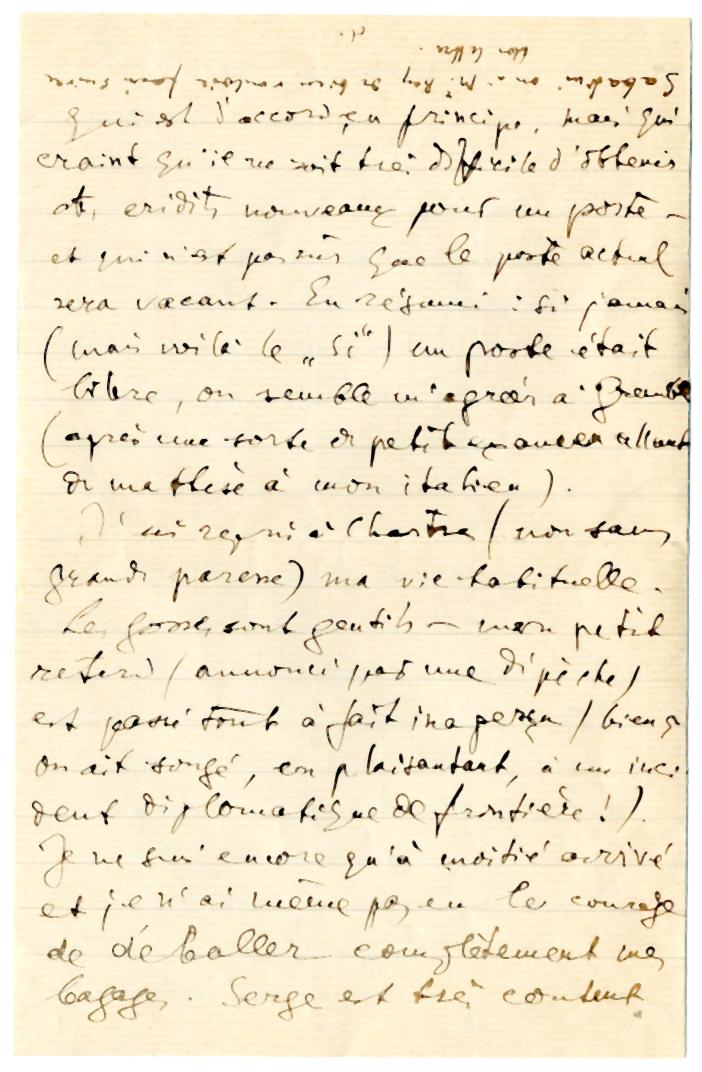 qui est d'accord, en principe, mais qui
craint qu'il ne soit très difficile d'obtenir
des crédits nouveaux pour un poste —
et qui n'est pas sûr que le poste actuel
sera vacant. En résumé : si jamais
(mais voilà le „si“) un poste était
libre, on semble m'agréer à Grenoble
(après une sorte de petit examen allant
de ma thèse à mon italien).
J'ai repris à Chartres (non sans
grande paresse) ma vie habituelle.
Les gosses sont gentils — mon petit
retard (annoncé par une dépêche)
est passé tout à fait inaperçu (bien q
on ait songé, en plaisantant, à un inci-
dent diplomatique de frontière !).
Je ne suis encore qu'à moitié arrivé
et je n'ai même pas eu le courage
de déballer complètement mes
bagages. Serge est très content